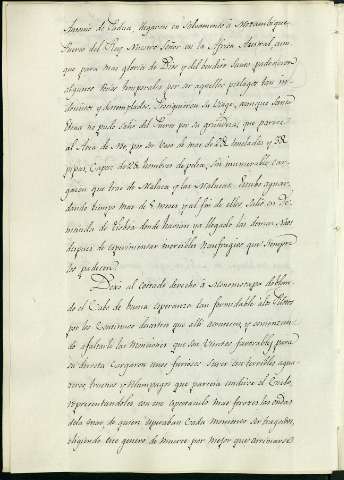 Antonio de Padua, llegaron en salvamento à Mozambique,
Puerto del Rey Nuestro Señor en la Africa Austral, aun
que para mas gloria de Dios y del bendito Santo padecieron
algunos mas temporales por ser aquellos pielagos tan in
domitos y destemplados. Prosiguieron su viage, aunque Santa
Elena no pudo salir del Puerto por su grandeza, que parecia
al Arca de Noe, por ser Vaso de mas de toneladas y
pipas, Capaz de hombres de pelea, sin innumerable car
gazon que trae de Malaca y las Malucas. Estubo aguar
dando tiempo mas de 8 meses, y al fin de ellos, Salio en De
manda de Lisboa donde havian ya llegado las demas Naos
despues de experimentar increibles Naufragios que siempre
los padecen.
Dexo al costado derecho à Monomotapa doblan
do el Cabo de buena esperanza tan formidable à los Pilotos
por los Continuos que alli comienzan
do à faltarle las Monciones que son Vientos favorables para
su derrota Cargaron unos furiosos Sures con terribles agua
ceros truenos y relampagos que parecia undirse el Cielo,
representandoles con ese espectaculo mas feroces las ondas
de la mar, de quien esperaban Cada momento ser tragados,
eligiendo este genero de muerte por mejor que arrimarse